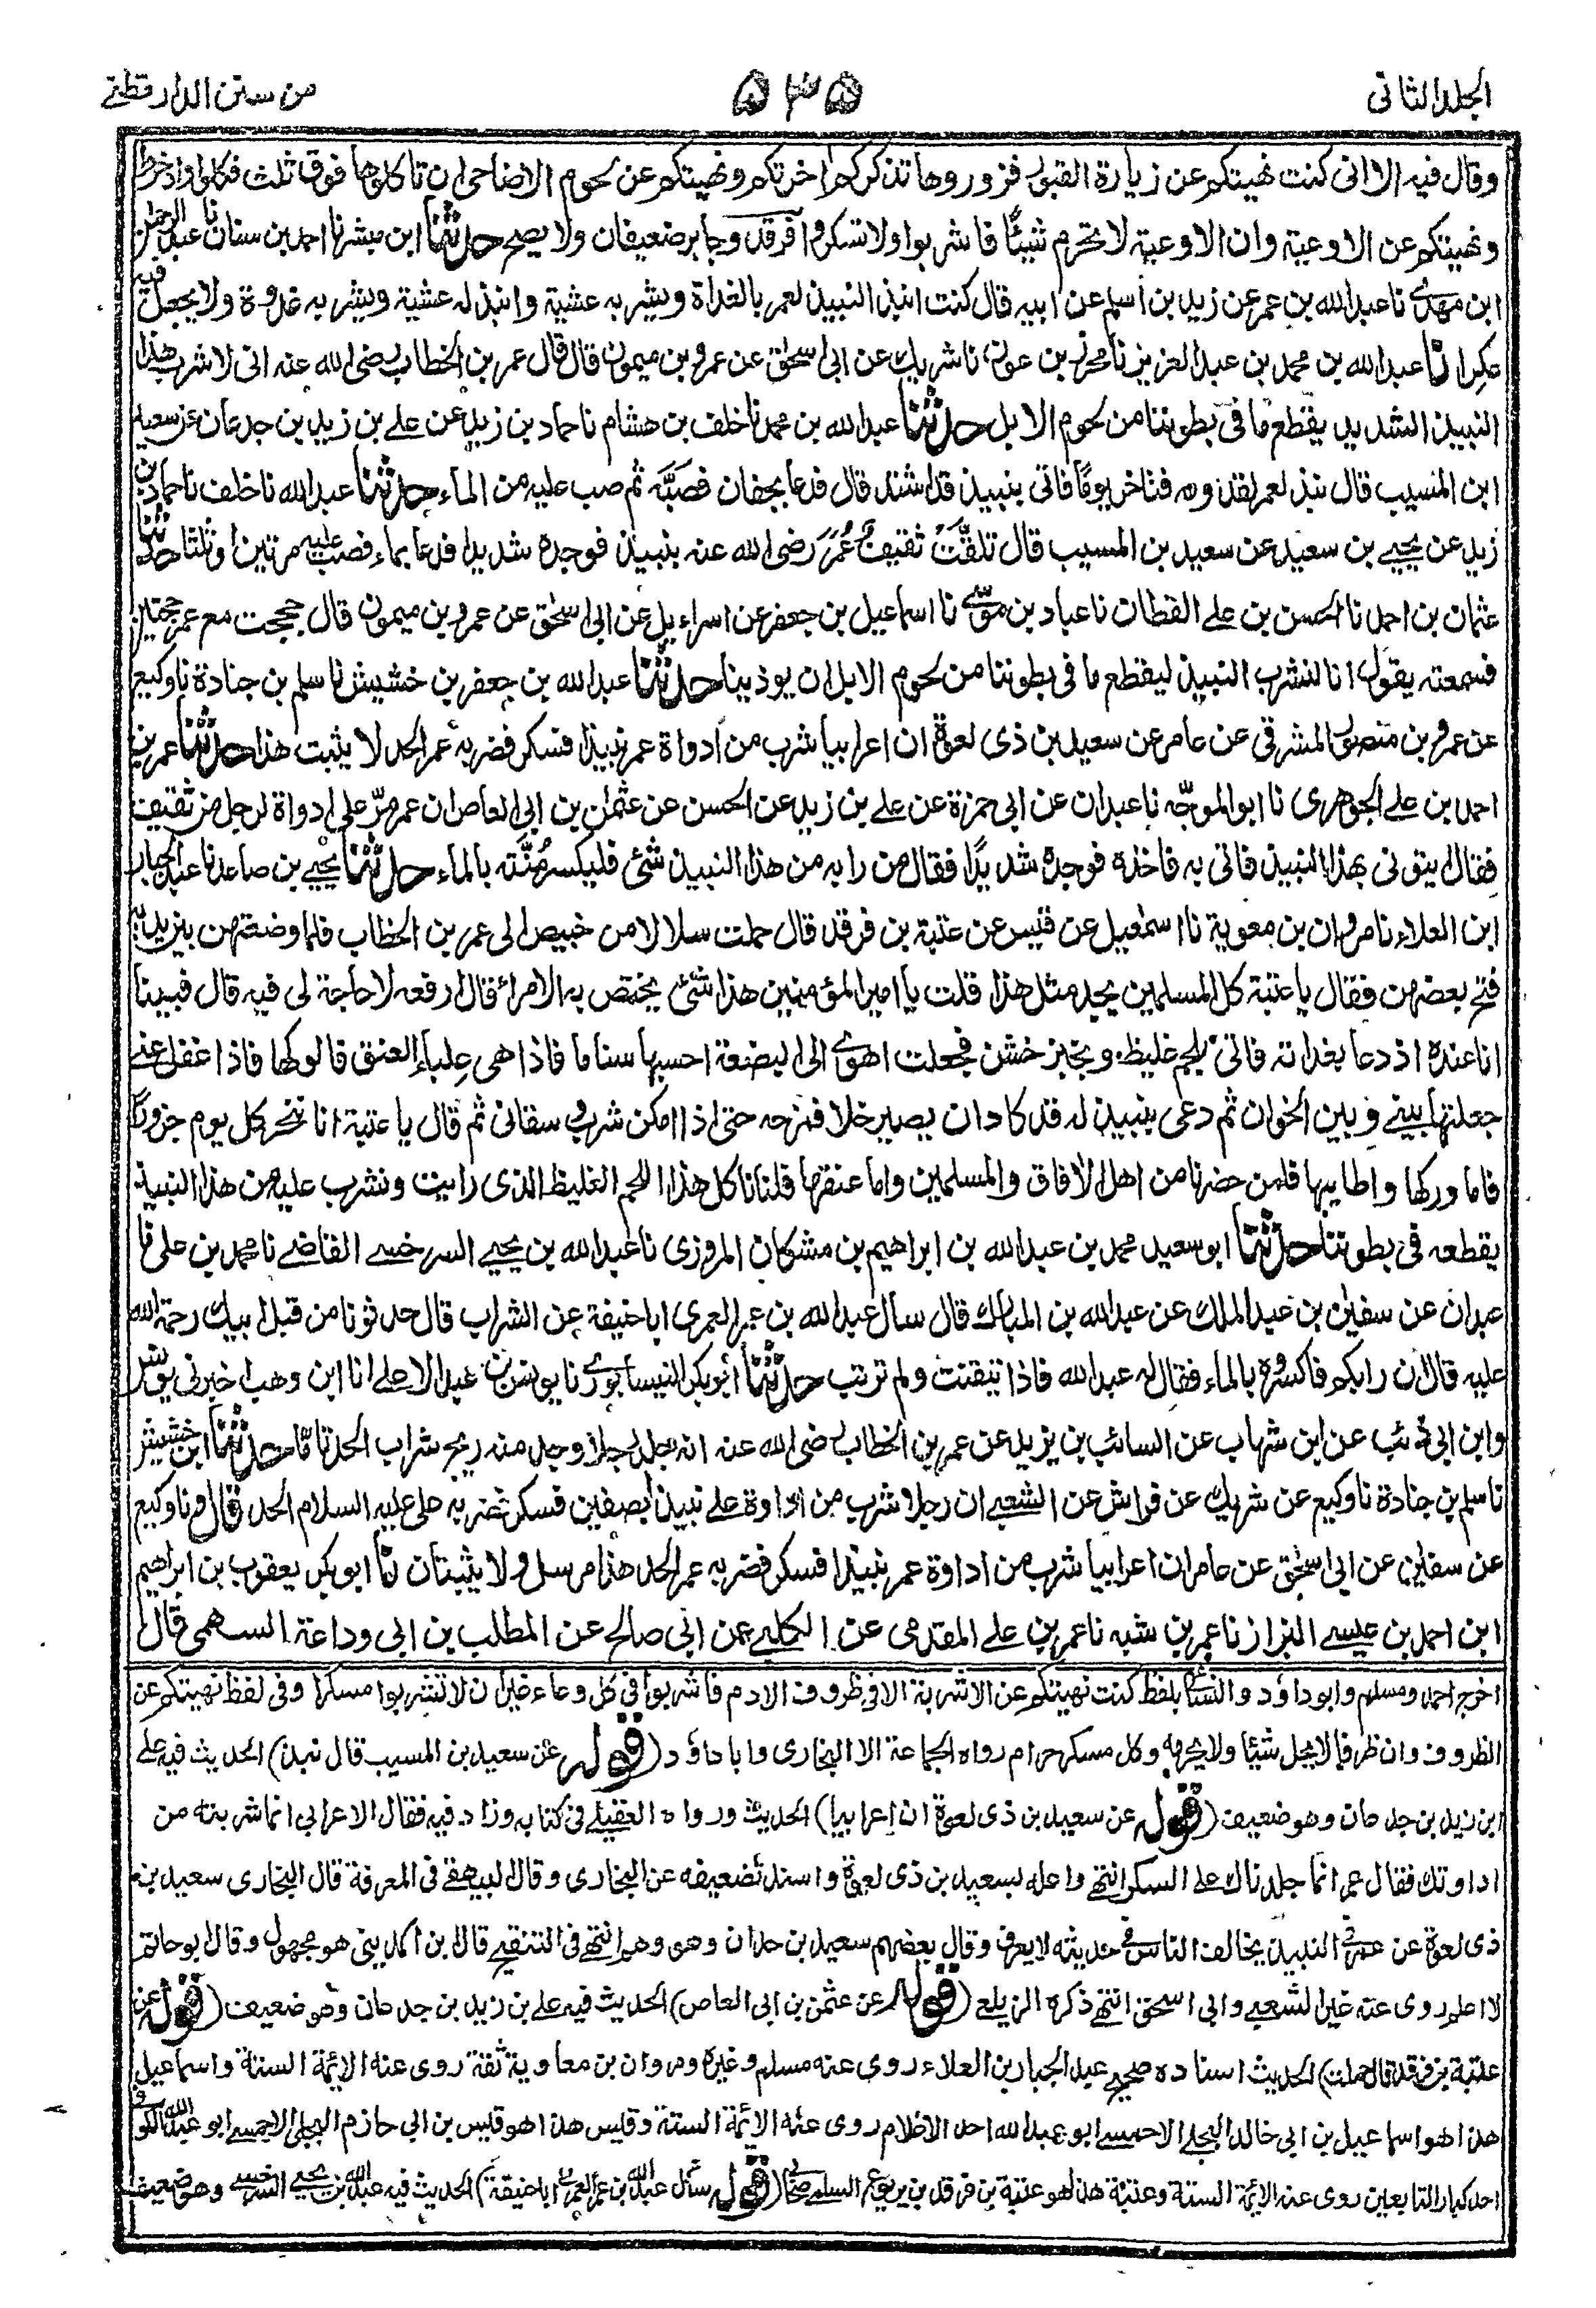 الجلد الثانى
۵۳۵
من سنن الدارقطنے
وقال فيه الا انى كنت نهيتكم عن زيارة القبور فزوروها تذكركم اخرتكم ونهيتكم عن لحوم الاضاحى ان تاكلوها فوق ثلث فكلوا وادخروا
ونهيتكم عن الاوعية وان الاوعية لا تحرم شيئًا فاشربوا ولا تسكروا فرقد وجابر ضعيفان ولا يصح حدثنا ابن مبشر نا احمد بن سنان نا عبد الرحمن
ابن مهدے نا عبد الله بن عمر عن زيد بن اسلم عن ابيه قال كنت انبذ النبيذ لعمر بالغداة ويشربه عشية وانبذ له عشية ويشربه غدوة ولا يجعل فيه
عكرا نا عبد الله بن محمد بن عبد العزيز نا محرز بن عون نا شريك عن ابى اسحٰق عن عمرو بن ميمون قال قال عمر بن الخطاب رضى الله عنه انى لاشرب هذا
النبيذ الشديد يقطع ما فى بطوننا من لحوم الابل حدثنا عبد الله بن محمد نا خلف بن هشام نا حماد بن زيد عن على بن زيد بن جدعان عن سعيد
ابن المسيب قال نبذ لعمر لقدومه فتاخر يومًا فاتى بنبيذ قد اشتد قال فدعا بجفان فصبّه ثم صب عليه من الماء حدثنا عبد الله نا خلف نا حماد بن
زيد عن يحيے بن سعيد عن سعيد بن المسيب قال تلقّت ثقيفٌ عُمَرَ رضى الله عنه بنبيذ فوجده شديدا فدعا بماء فصب عليه مرتين او ثلثا حدثنا
عثمان بن احمد نا الحسن بن على القطان نا عباد بن موسٰے نا اسماعيل بن جعفر عن اسراءيل عن ابى اسحٰق عن عمرو بن ميمون قال حججت مع عمر حجتين
فسمعته يقول انا لنشرب النبيذ ليقطع ما فى بطوننا من لحوم الابل ان يوذينا حدثنا عبد الله بن جعفر بن خشيش نا سلم بن جنادة نا وكيع
عن عمرو بن منصور المشرقى عن عامر عن سعيد بن ذى لعوة ان اعرابيا شرب من ادواة عمر نبيذا فسكر فضربه عمر الحد لا يثبت هذا حدثنا عمر بن
احمد بن على الجوهرى نا ابو الموجّه نا عبدان عن ابى حمزة عن على بن زيد عن الحسن عن عثمٰن بن ابى العاص ان عمر مرّ على ادواة لرجل من ثقيف
فقال ايتونى بهذا النبيذ فاتى به فاخذه فوجده شديدًا فقال من رابه من هذا النبيذ شئى فليكسر مُتّنه بالماء حدثنا يحيے بن صاعد نا عبد الجبار
ابن العلاء نا مروان بن معوية نا اسمٰعيل عن قيس عن عتبة بن فرقد قال حملت سلالا من خبيص الى عمر بن الخطاب فلما وضعتهن بين يديه
فتح بعضهن فقال يا عتبة كل المسلمين يجد مثل هذا قلت يا امير المؤمنين هذا شئى يختص به الامراء قال ارفعه لا حاجة لى فيه قال فبينا
انا عنده اذ دعا بغدائه فاتى بلحم غليظ وبخبز خشن فجعلت اهوے الى البضعة احسبها سناما فاذا هى علباء العنق فالوكها فاذا غفل عنے
جعلتها بينے وبين الخوان ثم دعى بنبيذ له قد كاد ان يصير خلا فمزجه حتى اذا امكن شرب وسقانى ثم قال يا عتبة انا ننحر كل يوم جزورًا
فاما وركها واطايبها فلمن حضرنا من اهل الآفاق والمسلمين واما عنقها فلنا ناكل هذا اللحم الغليظ الذى رايت ونشرب عليه من هذا النبيذ
يقطعه فى بطوننا حدثنا ابو سعيد محمد بن عبد الله بن ابراهيم بن مشكان المروزى نا عبد الله بن يحيے السرخسے القاضے نا محمد بن على نا
عبدان عن سفيٰن بن عبد الملك عن عبد الله بن المبارك قال سال عبد الله بن عمر العمرى ابا حنيفة عن الشراب قال حدثونا من قبل ابيك رحمة الله
عليه قال ان رابكم فاكسروه بالماء فقال له عبد الله فاذا تيقنت ولم ترتب حدثنا ابو بكر النيسابورے نا يونس بن عبد الاعلے انا ابن وهب اخبرنى يونس
وابن ابى ذئب عن ابن شهاب عن السائب بن يزيد عن عمر بن الخطاب رضى الله عنه انه جلد رجلا وجد منه ريح شراب الحد تامًا حدثنا ابن خشيش
نا سلم بن جنادة نا وكيع عن شريك عن فراش عن الشعبے ان رجلا شرب من اداوة على نبيذا بصفين فسكر فضربه على عليه السلام الحد قال ونا وكيع
عن سفيٰن عن ابى اسحٰق عن عامر ان اعرابيا شرب من اداوة عمر نبيذا فسكر فضربه عمر الحد هذا مرسل ولا يثبتان نا ابو بكر يعقوب بن ابراهيم
ابن احمد بن عيسے البزاز نا عمر بن شبه نا عمر بن على المقدمى عن الكلبے عن ابى صالح عن المطلب بن ابى وداعة السهمى قال
اخرج احمد ومسلم وابو داؤد والنسائى بلفظ كنت نهيتكم عن الاشربة الا فى ظروف الادم فاشربوا فى كل وعاء غير ان لا تشربوا مسكرا وفى لفظ نهيتكم عن
الظروف وان ظرفا لا يحل شيئا ولا يحرمه وكل مسكر حرام رواه الجماعة الا البخارى وابا داؤد (قوله عن سعيد بن المسيب قال نبذ) الحديث فيه على
ابن زيد بن جدعان وهو ضعيف (قوله عن سعيد بن ذى لعوة ان اعرابيا) الحديث ورواه العقيلے فى كتابه وزاد فيه فقال الاعرابى انما شربته من
اداوتك فقال عمر انما جلدناك على السكر انتهے واعله بسعيد بن ذى لعوة واسند تضعيفه عن البخارى وقال البيهقے فى المعرفة قال البخارى سعيد بن
ذى لعوة عن عمر فى النبيذ يخالف الناس فى حديثه لا يعرف وقال بعضهم سعيد بن حدان وهو وهم انتهے فى التنقيح قال ابن المدينى هو مجهول وقال ابو حاتم
لا اعلم روى عنه غير الشعبے وابى اسحق انتهے ذكره الزيلعے (قوله عن عثمٰن بن ابى العاص) الحديث فيه على بن زيد بن جدعان وهو ضعيف (قوله عن
عتبة بن فرقد قال حملت) الحديث اسناده صحيح عبد الجبار بن العلاء روى عنه مسلم وغيره ومروان بن معاوية ثقة روى عنه الايمة الستة واسماعيل
هذا هو اسماعيل بن ابى خالد البجلے الاحمسے ابو عبد الله احد الاعلام روى عنه الايمة الستة وقيس هذا هو قيس بن ابى حازم البجلى الاحمسے ابو عبد الله الكوفى
احد كبار التابعين روى عنه الايمة الستة وعتبة هذا هو عتبة بن فرقد بن يربوع السلمے صحابى (قوله سال عبد الله بن عمر العمرى ابا حنيفة) الحديث فيه عبد الله بن يحيے السرخسے وهو ضعيف